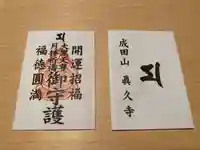 開運招福
御守護
福徳圓満
成田山 眞久寺